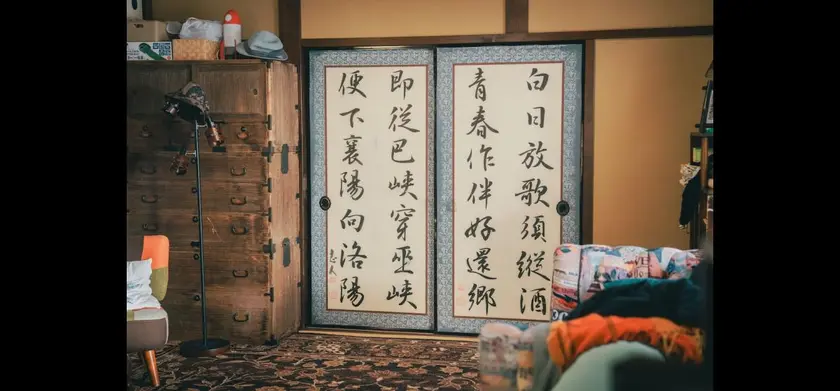 白日放歌須縱酒
青春作伴好還鄉
即從巴峽穿巫峽
便下襄陽向洛陽